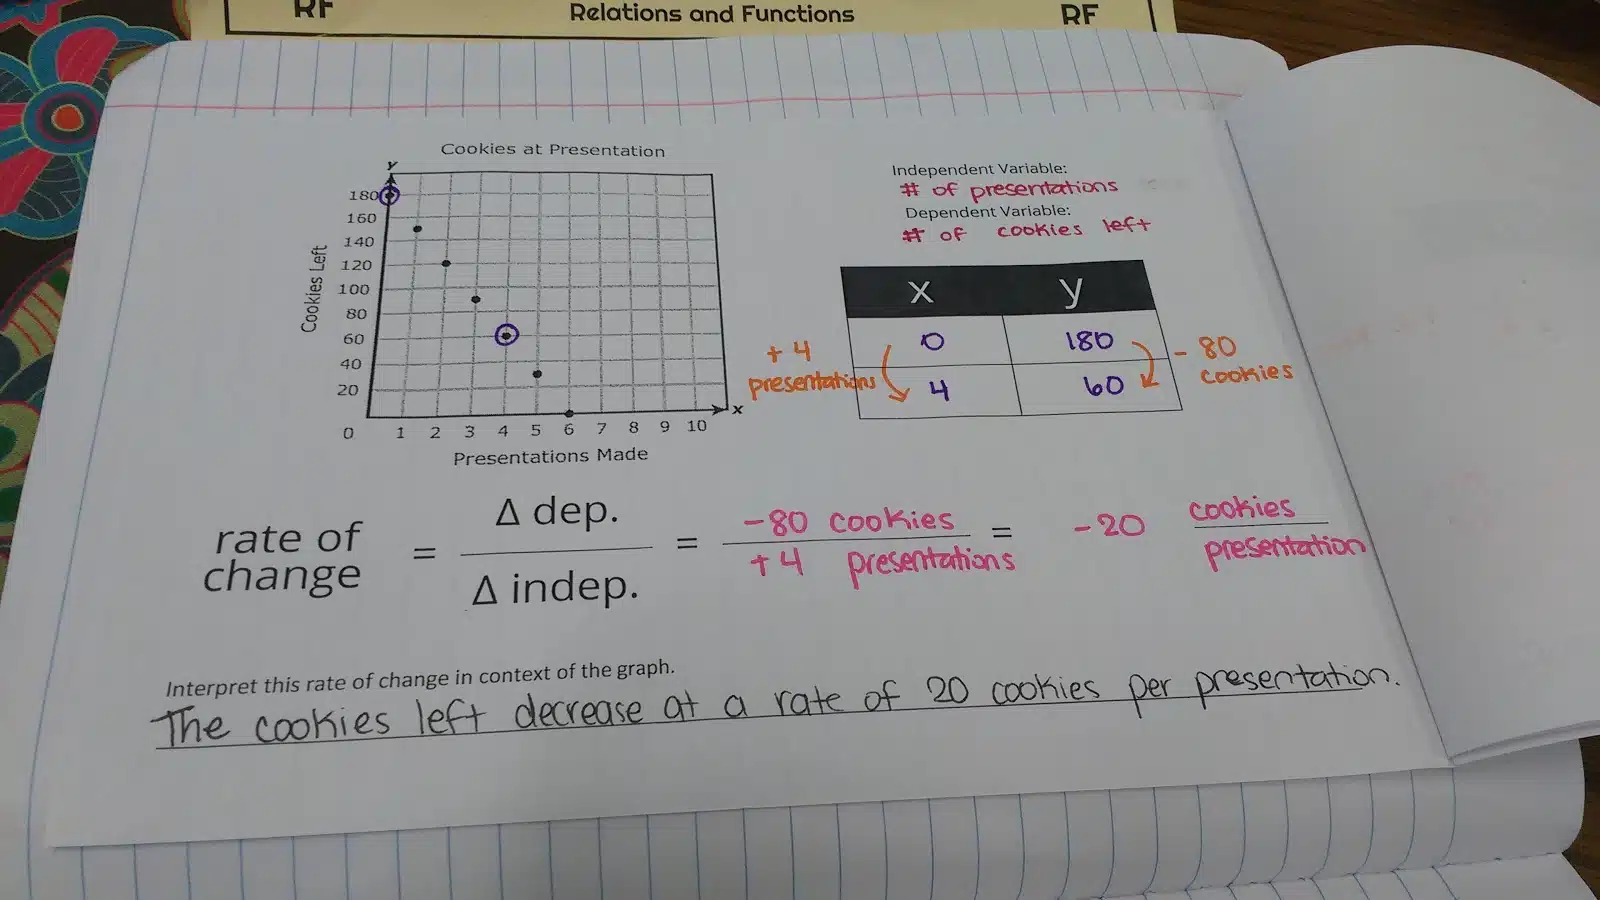 RF Relations and Functions RF
Cookies at Presentation
y
Cookies Left
180
160
140
120
100
80
60
40
20
0 1 2 3 4 5 6 7 8 9 10
x
Presentations Made
Independent Variable:
# of presentations
Dependent Variable:
# of cookies left
x y
0 180
4 60
+ 4
presentations
- 80
cookies
rate of
change
=
Δ dep.
Δ indep.
=
-80 cookies
+4 presentations
=
-20
cookies
presentation
Interpret this rate of change in context of the graph.
The cookies left decrease at a rate of 20 cookies per presentation.